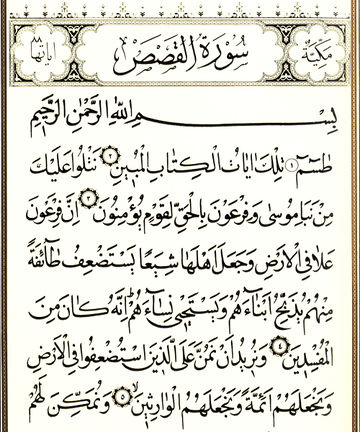 مكية سورة القصص آياتها ٨٨
بِسْمِ اللهِ الرَّحْمٰنِ الرَّحِيمِ
طٰسٓمٓ ١ تِلْكَ اٰيَاتُ الْكِتَابِ الْمُبِينِ ٢ نَتْلُوا عَلَيْكَ
مِنْ نَبَأِ مُوسٰى وَفِرْعَوْنَ بِالْحَقِّ لِقَوْمٍ يُؤْمِنُونَ ٣ اِنَّ فِرْعَوْنَ
عَلَا فِي الْاَرْضِ وَجَعَلَ اَهْلَهَا شِيَعًا يَسْتَضْعِفُ طَٓائِفَةً
مِنْهُمْ يُذَبِّحُ اَبْنَٓاءَهُمْ وَيَسْتَحْيِ نِسَٓاءَهُمْ اِنَّهُ كَانَ مِنَ
الْمُفْسِدِينَ ٤ وَنُرِيدُ اَنْ نَمُنَّ عَلَى الَّذِينَ اسْتُضْعِفُوا فِي الْاَرْضِ
وَنَجْعَلَهُمْ اَئِمَّةً وَنَجْعَلَهُمُ الْوَارِثِينَ ٥ وَنُمَكِّنَ لَهُمْ